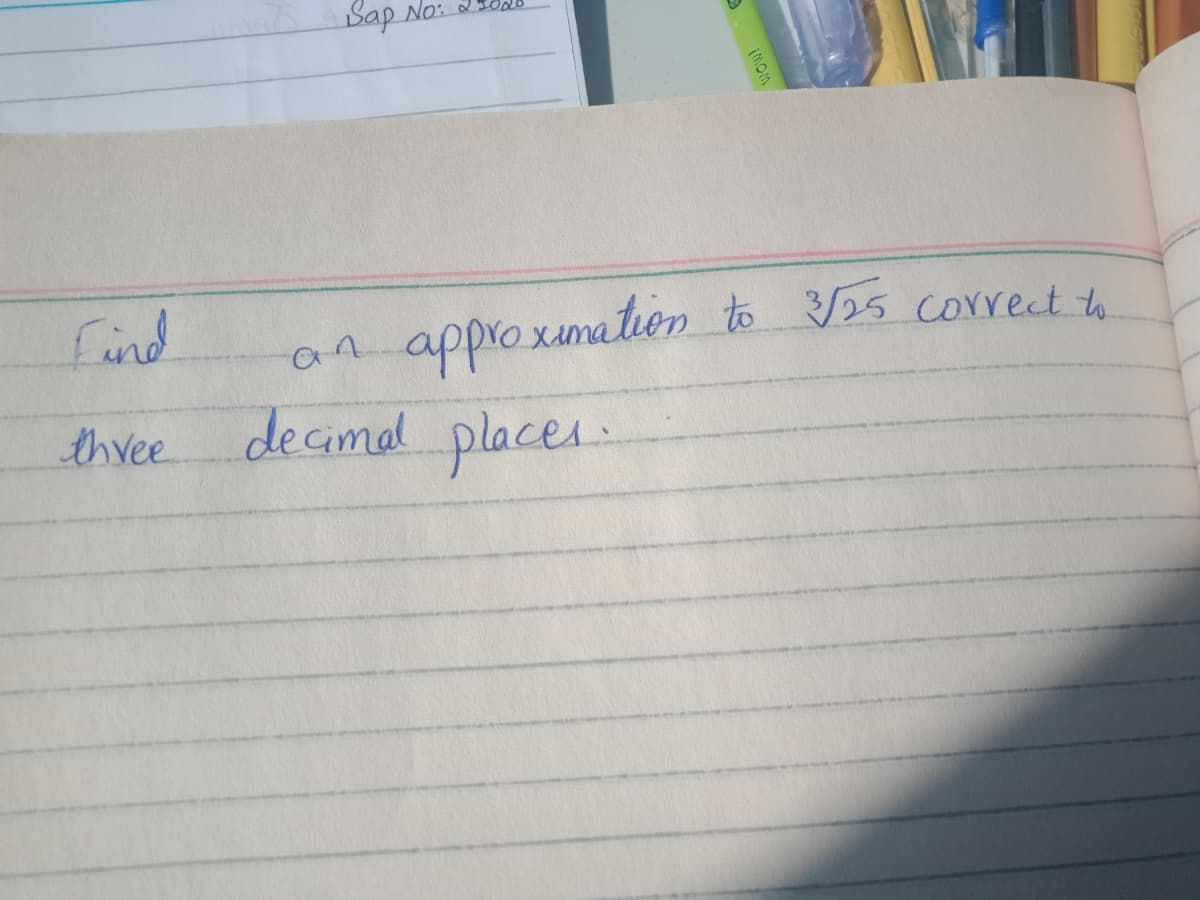 Sap No:
imom
Find an approximation to ∛25 correct to
three decimal places.